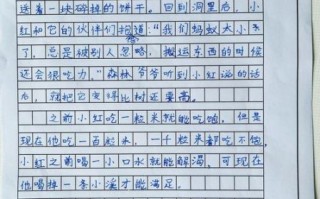 送着一块碎掉的饼干。回到洞里后，小
红和它的伙伴们抱道："我们蚂蚁太小
了，总是被别人忽略，搬运东西的时候
还会很吃力"森林爷爷听到小红说的话
后，就把它变得比树还要高。
之前小红吃一粒米就能吃饱，但是
现在他吃一百粒米，一千粒米都吃不饱，
小红之前喝一小口水就能解渴，可现在
他喝掉一条小溪才能满足。